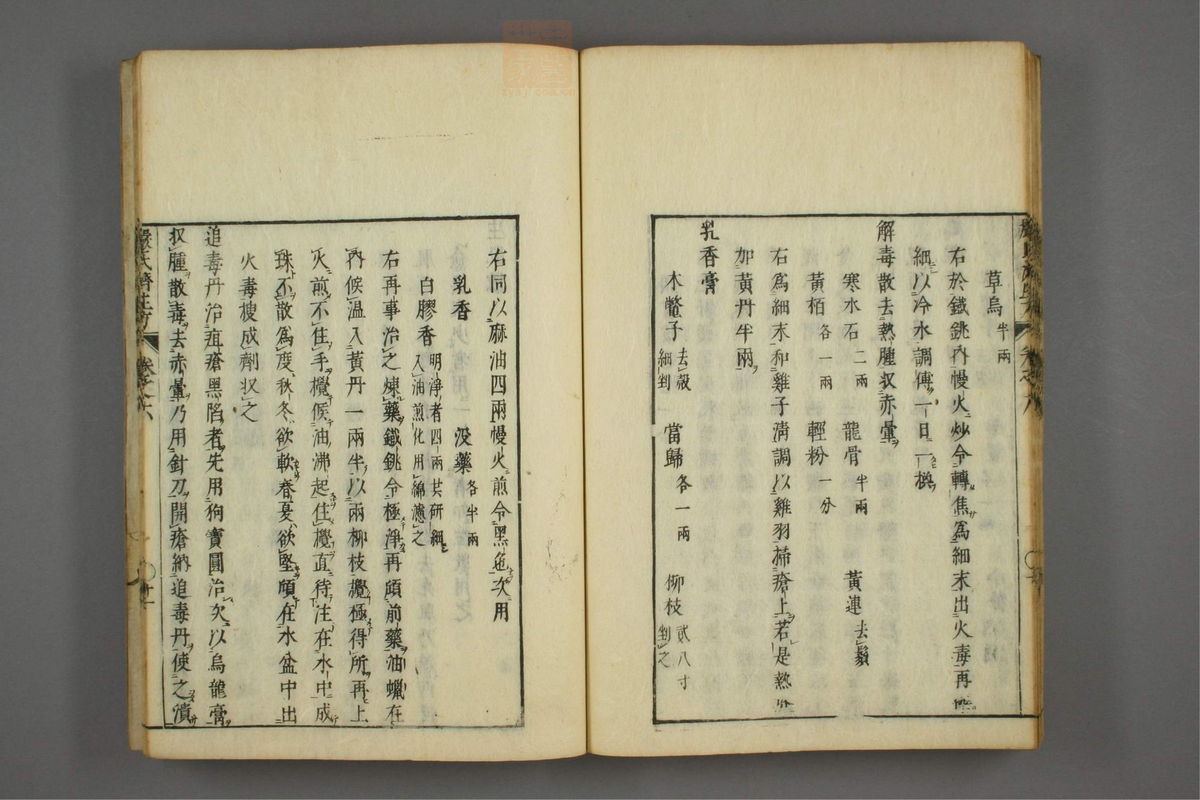 草烏半兩
右於鐵銚內慢火炒令轉焦為細末出火毒再
細以冷水調傅一日一換
解毒散去熱腫収赤暈
寒水石二兩 龍骨半兩 黃連去鬚
黃栢各一兩 輕粉一分
右為細末和雞子清調以雞羽掃瘡上若是熱
加黃丹半兩
乳香膏
木鱉子去殼細剉 當歸各一兩 柳枝貳八寸剉之
右同以麻油四兩慢火煎令黑色次用
乳香 沒藥各半兩
白膠香明淨者四兩其研細入油煎化用綿濾之
右再事治之煉藥鐵銚令極淨再傾前藥油蠟在
內候溫入黃丹一兩半以兩柳枝攪極得所再上
火煎不住手攪候油沸起住攪直待注在水中成
珠不散為度秋冬欲軟春夏欲堅傾在水盆中出
火毒搜成劑収之
追毒丹治疽瘡黑陷者先用狗寶圓治次以烏龍膏
収腫散毒去赤暈乃用針刀開瘡納追毒丹使之潰
嚴氏濟生方 卷之六